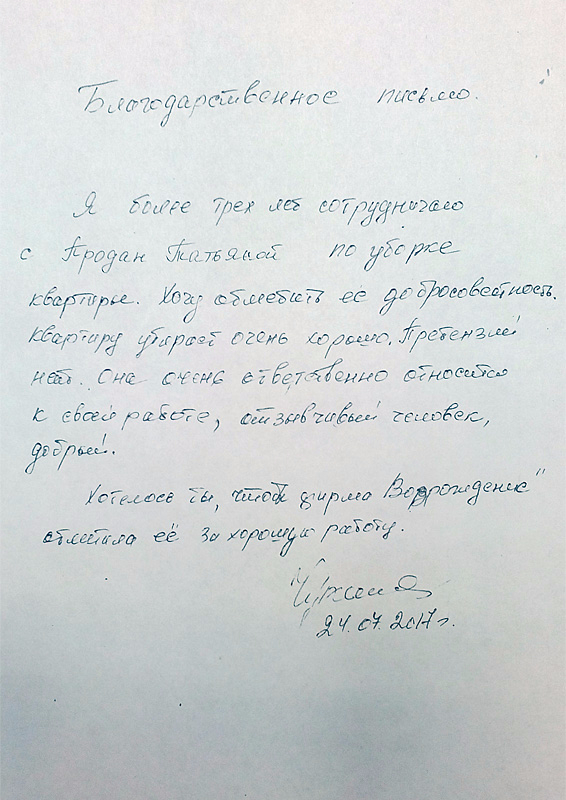 Благодарственное письмо.
Я более трех лет сотрудничаю
с Продан Татьяной по уборке
квартиры. Хочу отметить ее добросовестность.
Квартиру убирает очень хорошо. Претензий
нет. Она очень ответственно относится
к своей работе, отзывчивый человек,
добрый.
Хотелось бы, чтобы фирма Возрождение"
отметила её за хорошую работу.
24.07.2017г.